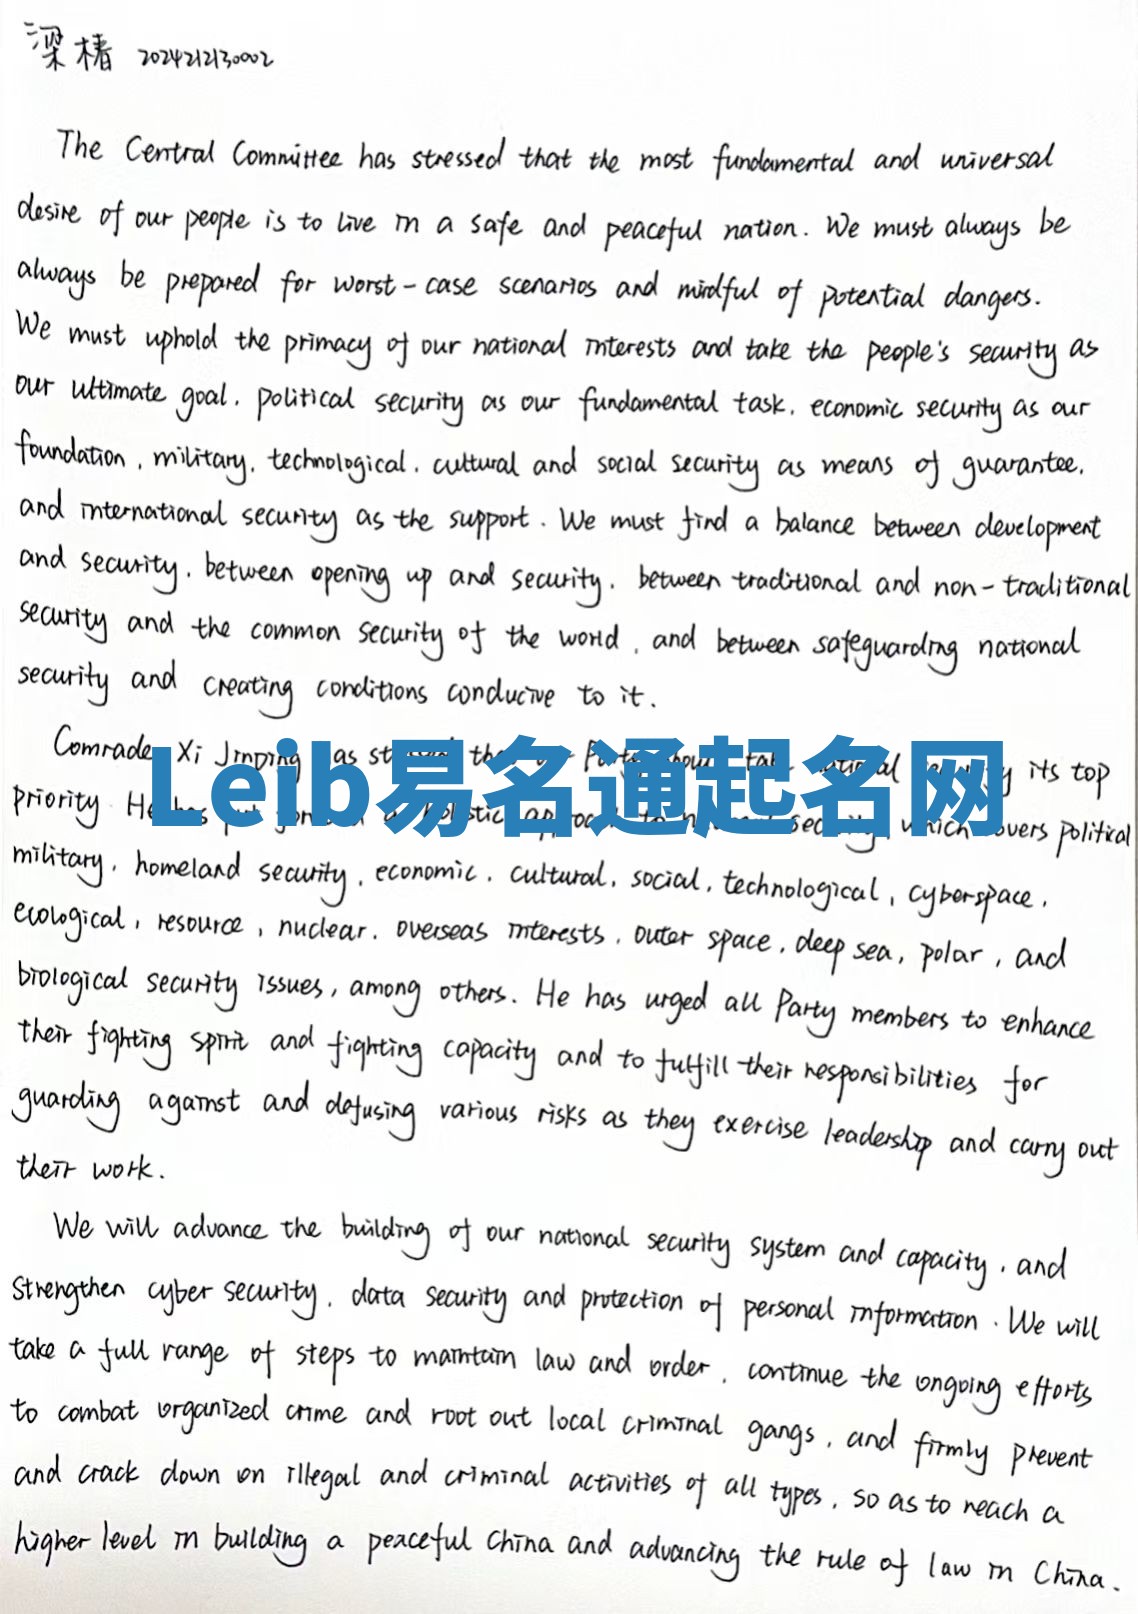 梁椿 2024212130002
The Central Committee has stressed that the most fundamental and universal
desire of our people is to live in a safe and peaceful nation. We must always be
always be prepared for worst-case scenarios and mindful of potential dangers.
We must uphold the primacy of our national interests and take the people's security as
our ultimate goal, political security as our fundamental task, economic security as our
foundation, military, technological, cultural and social security as means of guarantee,
and international security as the support. We must find a balance between development
and security, between opening up and security, between traditional and non-traditional
security and the common security of the world, and between safeguarding national
security and creating conditions conducive to it.
Comrade Xi Jinping its top
Leib易名通起名网
priority. He which political
military, homeland security, economic, cultural, social, technological, cyberspace,
ecological, resource, nuclear, overseas interests, outer space, deep sea, polar, and
biological security issues, among others. He has urged all Party members to enhance
their fighting spirit and fighting capacity and to fulfill their responsibilities for
guarding against and defusing various risks as they exercise leadership and carry out
their work.
We will advance the building of our national security system and capacity, and
strengthen cyber security, data security and protection of personal information. We will
take a full range of steps to maintain law and order, continue the ongoing efforts
to combat organized crime and root out local criminal gangs, and firmly prevent
and crack down on illegal and criminal activities of all types, so as to reach a
higher level in building a peaceful China and advancing the rule of law in China.